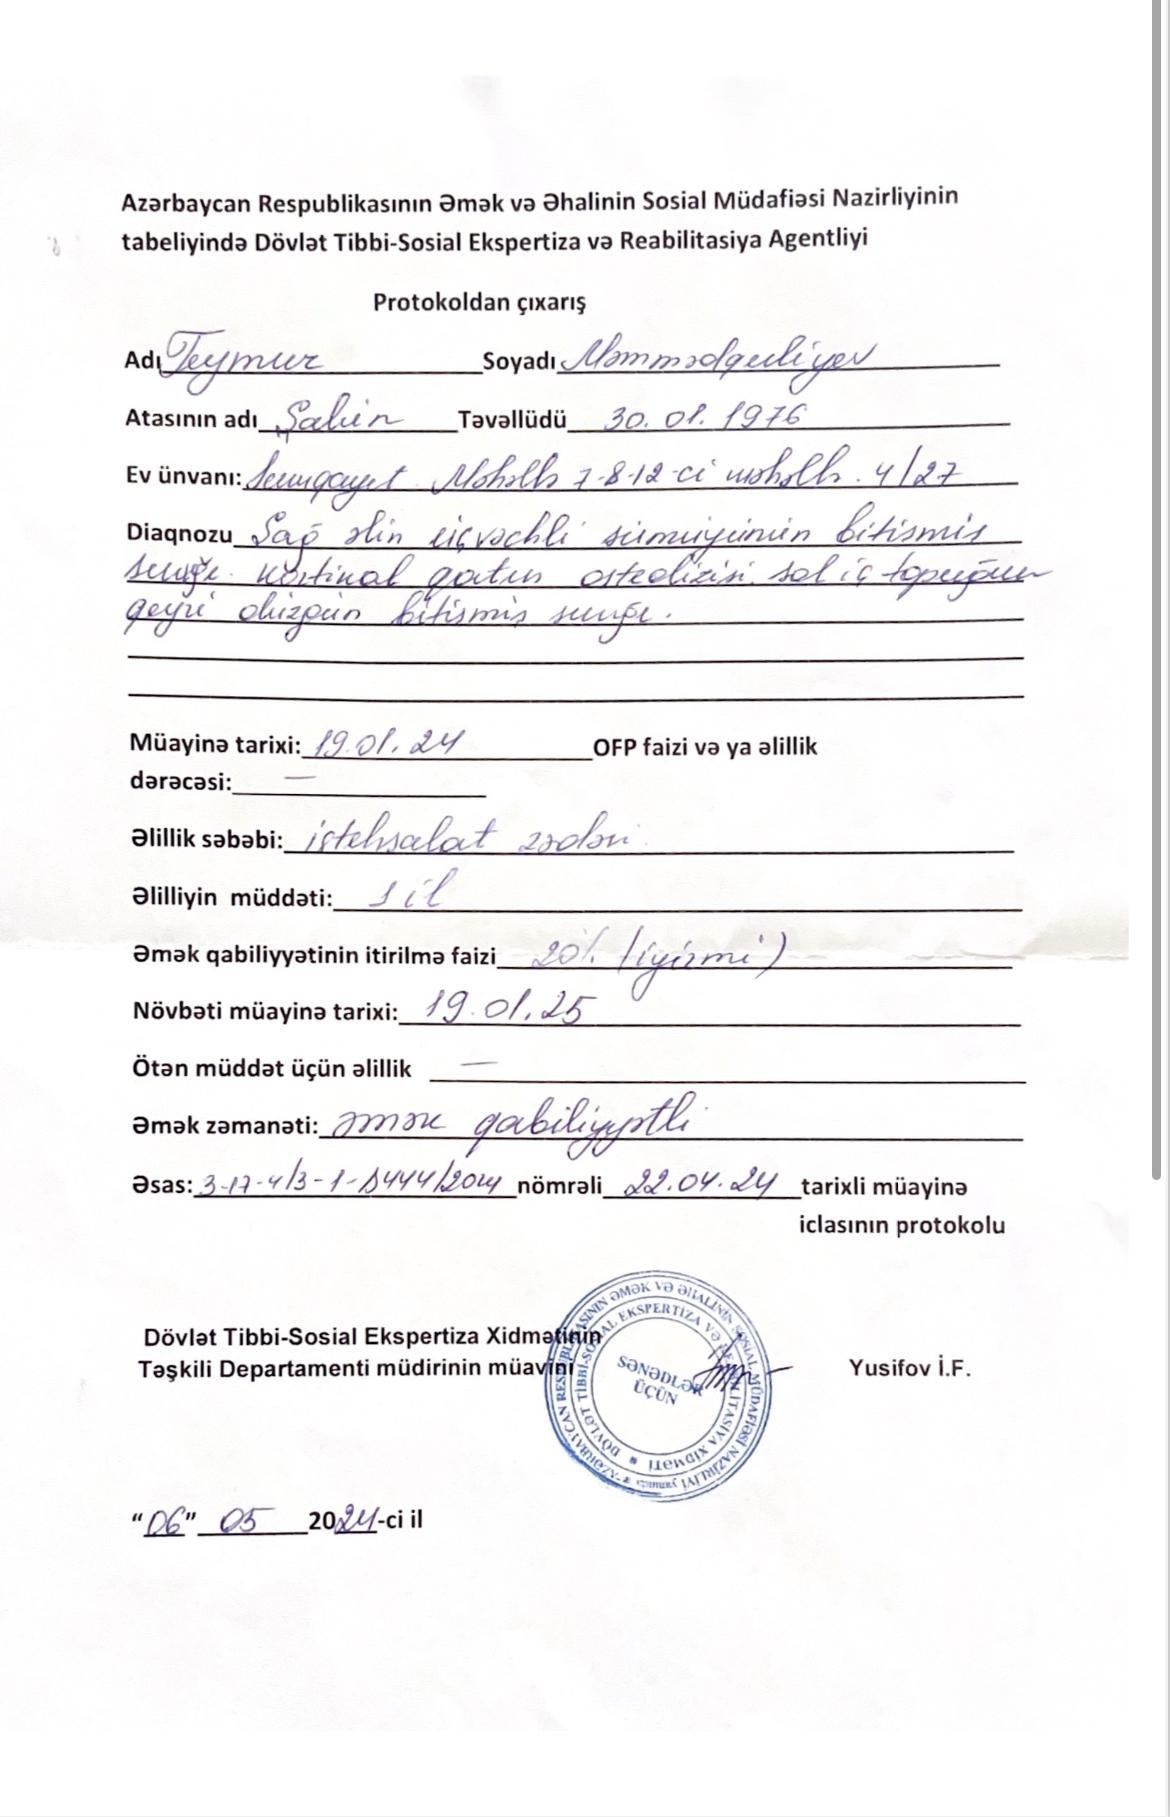 Azərbaycan Respublikasının Əmək və Əhalinin Sosial Müdafiəsi Nazirliyinin
tabeliyində Dövlət Tibbi-Sosial Ekspertiza və Reabilitasiya Agentliyi
Protokoldan çıxarış
Adı Teymur Soyadı Məmmədquliyev
Atasının adı Şahin Təvəllüdü 30.01.1976
Ev ünvanı: Sumqayıt Məhəllə 7-8-12-ci məhəllə. 4/27
Diaqnozu Sağ əlin üçvəchli sümüyünün bitişmiş
sınığı. kortinal qatın osteolizisi. sol iç topuğun
qeyri düzgün bitişmiş sınığı.
Müayinə tarixi: 19.01.24 OFP faizi və ya əlillik
dərəcəsi: —
Əlillik səbəbi: istehsalat zədəsi
Əlilliyin müddəti: 1 il
Əmək qabiliyyətinin itirilmə faizi 20% (iyirmi)
Növbəti müayinə tarixi: 19.01.25
Ötən müddət üçün əlillik —
Əmək zəmanəti: əmək qabiliyyətli
Əsas: 3-17-4/3-1- 444/2024 nömrəli 22.04.24 tarixli müayinə
iclasının protokolu
Dövlət Tibbi-Sosial Ekspertiza Xidmətinin
Təşkili Departamenti müdirinin müavini Yusifov İ.F.
AZƏRBAYCAN RESPUBLİKASININ ƏMƏK VƏ ƏHALİNİN SOSİAL MÜDAFİƏSİ NAZİRLİYİ yanında
DÖVLƏT TİBBİ-SOSİAL EKSPERTİZA VƏ REABİLİTASİYA XİDMƏTİ
SƏNƏDLƏR
ÜÇÜN
"06" 05 2024-ci il